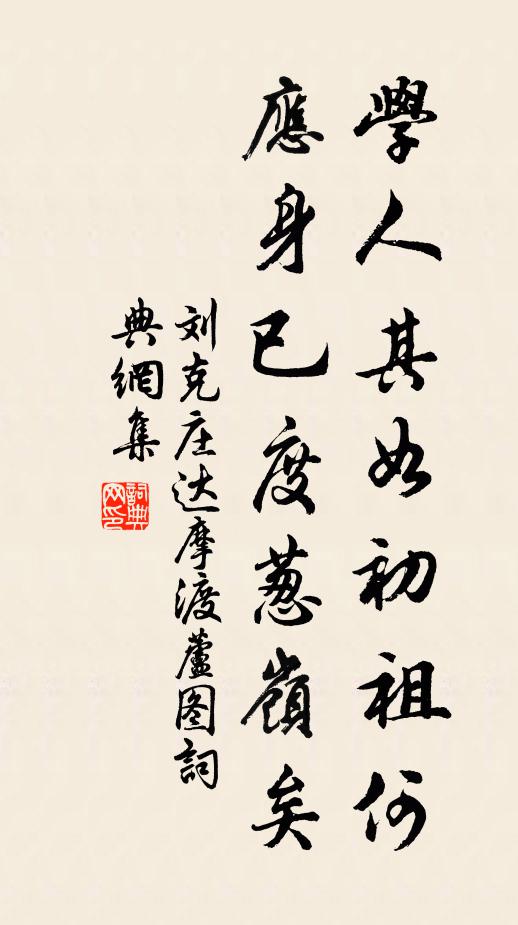 學人其如初祖何
應身已度葱嶺矣
刘克庄达摩渡蘆图詞
典網集
詞典
网印